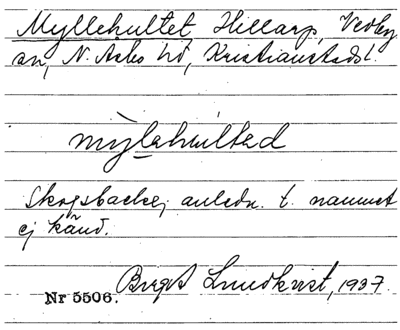 Myllehultet, Hillarp, Vedby
sn, N. Åsbo hd, Kristianstads l.
mỳlehultəd
Skogsbacke; anledn. t. namnet
ej känd.
Birgit Lundkvist, 1937.
Nr 5506.